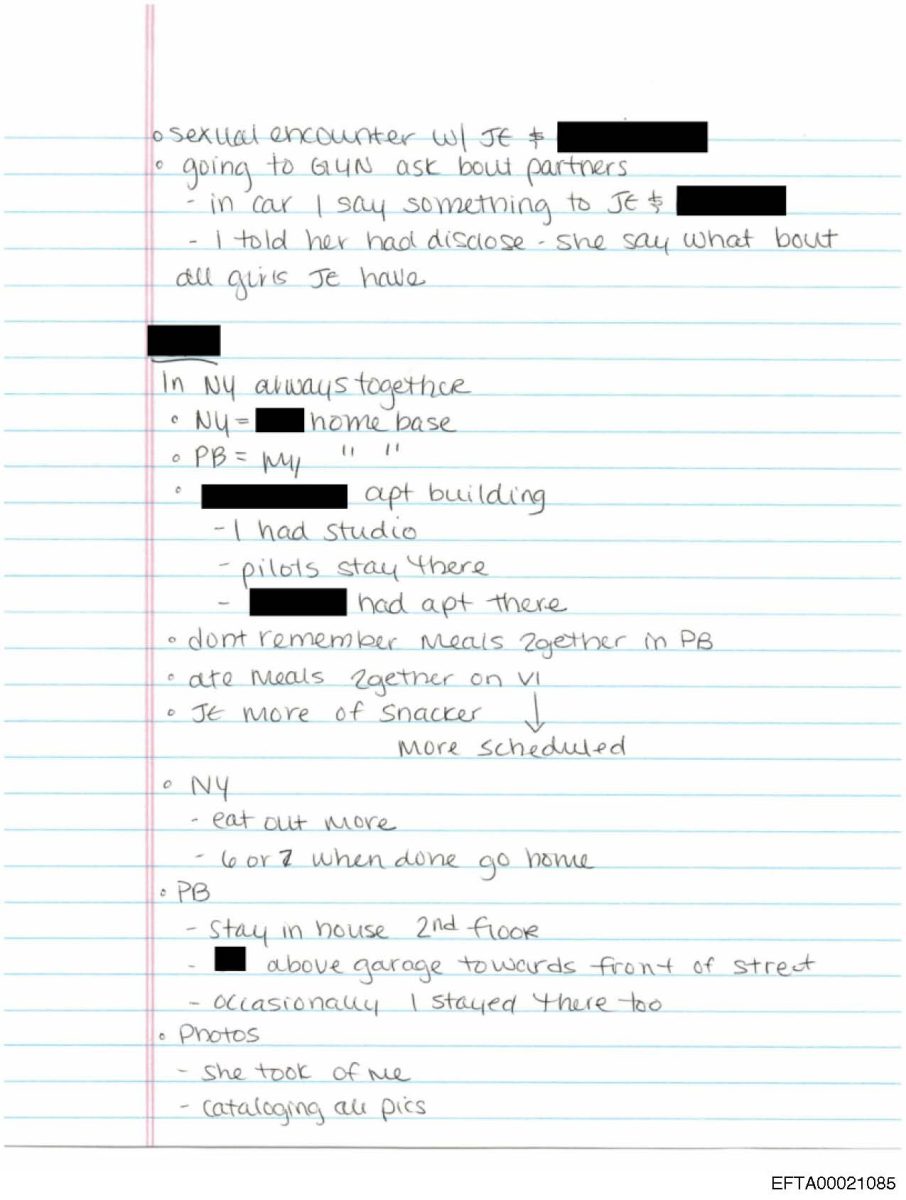 ◦ sexual encounter w/ JE &
◦ going to GYN ask bout partners
- in car I say something to JE &
- I told her had disclose - she say what bout
all girls JE have
In NY always together
◦ NY = home base
◦ PB = my " "
◦ apt building
- I had studio
- pilots stay there
- had apt there
◦ dont remember Meals 2gether in PB
◦ ate Meals 2gether on VI
◦ JE more of snacker ↓
More scheduled
◦ NY
- eat out more
- 6 or 7 when done go home
◦ PB
- stay in house 2nd floor
- above garage towards front of street
- occasionally I stayed there too
◦ Photos
- she took of me
- cataloging all pics
EFTA00021085